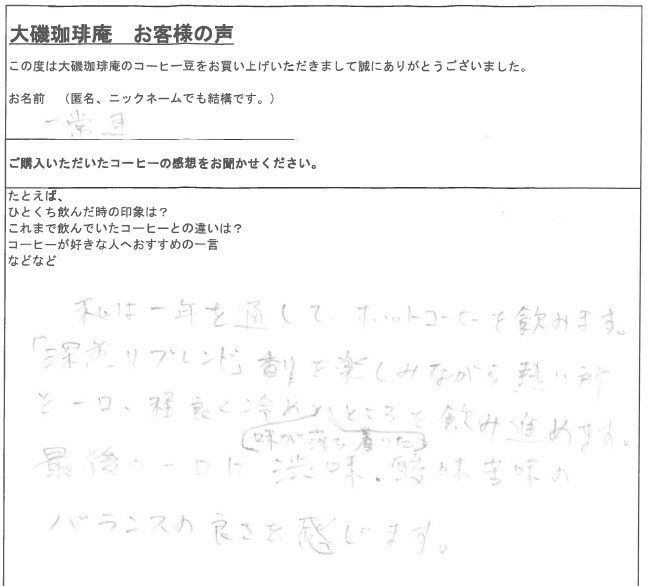 大磯珈琲庵 お客様の声
この度は大磯珈琲庵のコーヒー豆をお買い上げいただきまして誠にありがとうございました。
お名前 （匿名、ニックネームでも結構です。）
一常連
ご購入いただいたコーヒーの感想をお聞かせください。
たとえば、
ひとくち飲んだ時の印象は？
これまで飲んでいたコーヒーとの違いは？
コーヒーが好きな人へおすすめの一言
などなど
私は一年を通して、ホットコーヒーを飲みます。
「深煎りブレンド」香りを楽しみながら熱い所
を一口、程良く冷めたところを飲み進めます。
味が落ち着いた
最後の一口に 渋味、酸味苦味の
バランスの良さを感じます。